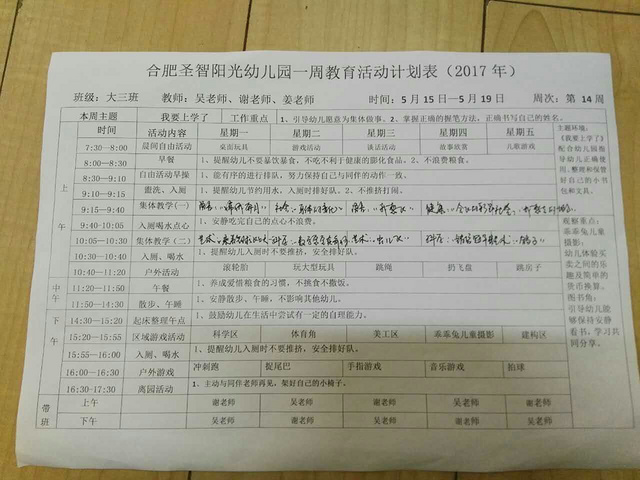 合肥圣智阳光幼儿园一周教育活动计划表（2017 年）
班级：大三班 教师：吴老师、谢老师、姜老师 时间：5 月 15日—5 月 19日 周次：第 14 周
本周主题 我要上学了 工作重点 1、引导幼儿愿意为集体做事。2、掌握正确的握笔方法，正确书写自己的姓名。
时间 活动内容 星期一 星期二 星期三 星期四 星期五
主题环境：《我要上学了》配合幼儿园指导幼儿正确使用、整理和保管好自己的小书包和文具。
上午
7:30—8:00 晨间自由活动 桌面玩具 游戏活动 谈话活动 故事欣赏 儿歌游戏
8:00—8:30 早餐 1、提醒幼儿不要暴饮暴食，不吃不利于健康的膨化食品。2、不浪费粮食。
8:30—9:10 自由活动早操 1、能有序的进行排队，努力保持自己与同伴的动作一致。
9:10—9:15 盥洗、入厕 1、提醒幼儿节约用水，入厕时排好队。2、不推挤打闹。
9:15—9:40 集体教学（一）
9:40—10:05 入厕喝水心点 1、安静吃完自己的点心不浪费。
观察重点：
乖乖兔儿童摄影：
幼儿体验买卖之间的乐趣及简单的货币换算。
图书角：
引导幼儿能够保持安静看书，学习共同分享。
10:05—10:30 集体教学（二）
10:30—10:40 入厕、喝水 1、提醒幼儿入厕时不要推挤，安全排好队。
10:40—11:20 户外活动 滚轮胎 玩大型玩具 跳绳 扔飞盘 跳房子
中午
11:20—11:50 午餐 1、养成爱惜粮食的习惯，不挑食不撒饭。
11:50—14:30 散步、午睡 1、安静散步、午睡，不影响其他幼儿。
下午
14:30—15:20 起床整理午点 1、鼓励幼儿在生活中尝试有一定的自理能力。
15:20—15:55 区域游戏活动 科学区 体育角 美工区 乖乖兔儿童摄影 建构区
15:55—16:00 入厕、喝水 1、提醒幼儿入厕时不要推挤，安全排好队。
16:00—16:30 户外游戏 冲刺跑 捉尾巴 手指游戏 音乐游戏 拍球
16:30-17:30 离园活动 1、主动与同伴老师再见，架好自己的小椅子。
带班
上午 谢老师 谢老师 吴老师 谢老师
下午 吴老师 吴老师 谢老师 吴老师